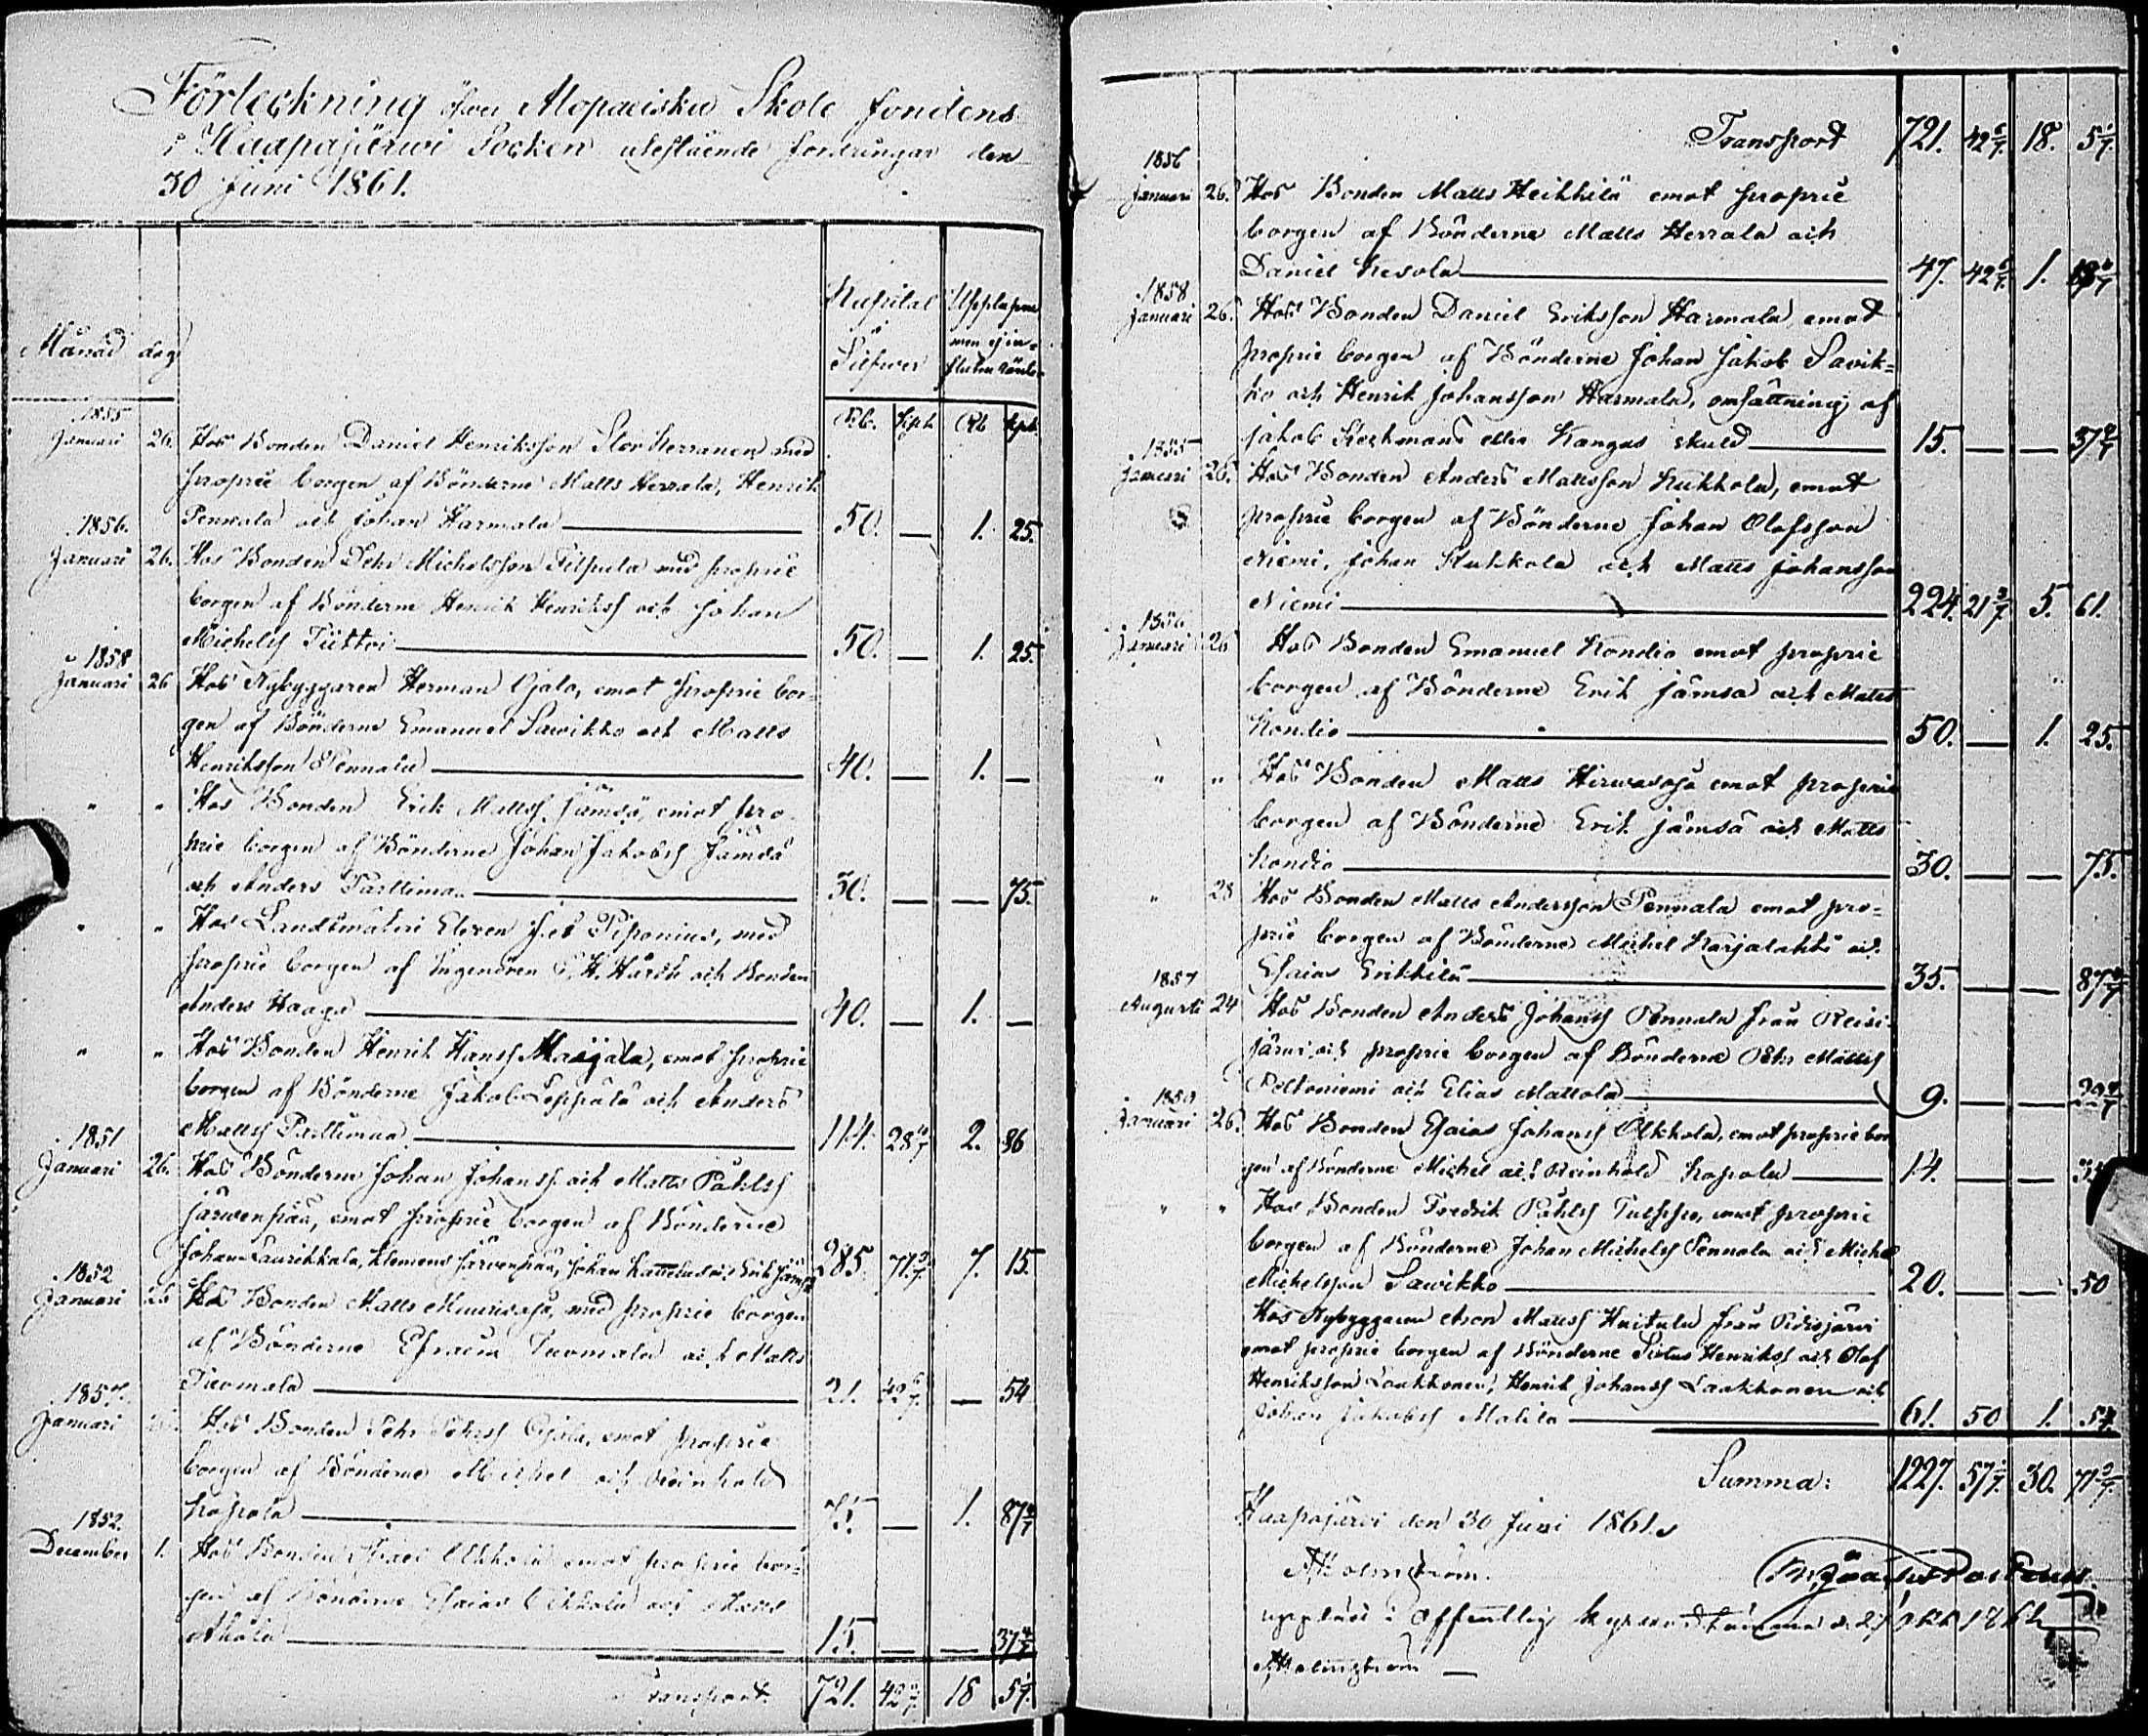 Förteckning öfver Alopaeiska Skole fondens
i Haapajärwi Socken utestående fordringar den
30 Juni 1861.
Månad dag
Kapital i Silfwer
Upplupne men ej influtna räntor
Rb. Kopk. Rb Kopk.
1855
Januari 26. Hos Bonden Daniel Henriksson Stor Kerranen med
proprie borgen af Bönderne Matts Herrala, Henrik
Pennala och Johan Harmala 50. — 1. 25.
1856.
Januari 26. Hos Bonden Pehr Michelsson Tilpula med proprie
borgen af Bönderne Henrik Henrikss och Johan
Michelss Tiittoi 50. — 1. 25.
1858
Januari 26 Hos Nybyggaren Herman Ojala, emot proprie bor-
gen af Bönderne Emanuel Sawikko och Matts
Henriksson Pennala 40. — 1. —
" " Hos Bonden Erik Mattss. Jämsä, emot pro-
prie borgen af Bönderne Johan Jakobss Jämsä
och Anders Parttima 30. — — 75.
" " Hos Landtmäteri Eleven Piponius, med
proprie borgen af Ingeniören Hårdh och Bonden
Anders Haaga 40. — 1. —
" " Hos Bonden Henrik Hanss Maijala, emot proprie
borgen af Bönderne Jakob Leppälä och Anders
Mattss Parttimaa 114. 28 4/7 2. 86
1851
Januari 26. Hos Bönderne Johan Johanss. och Matts Påhlss
Järwenpää, emot proprie borgen af Bönderne
Johan Laurikkala, Klemens Järwenpää, Johan Kattelus och Erik Jämsä 285. 71 3/7. 7. 15.
1852
Januari 26 Hos Bonden Matts Muurisoja, med proprie borgen
af Bönderne Efraim Tuomala och Matts
Tuomala 21. 42 6/7. — 54
1857.
Januari Hos Bonden Pehr Pehrss Ojala, emot proprie
borgen af Bönderne Michel och Reinhold
Kopola 75. — 1. 87 4/7
1852.
December 1. Hos Bonden Olkkola emot proprie bor-
gen af Bönderne Esaias Olkkola och
Ahola 15. — — 37 4/7
Transport 721. 42 6/7. 18 5 1/7.
Transport 721. 42 6/7. 18. 5 1/7
1856
Januari 26. Hos Bonden Matts Heikkilä emot proprie
borgen af Bönderne Matts Herrala och
Daniel Kesola 47. 42 6/7. 1.
1858
Januari 26. Hos Bonden Daniel Eriksson Harmala, emot
proprie borgen af Bönderne Johan Jakob Sawik-
ko och Henrik Johansson Harmala, omsättning af
Jakob Keskmans eller Kangas skuld 15. — — 37 4/7
1855
Januari 26. Hos Bonden Anders Mattsson Kukkola, emot
proprie borgen af Bönderne Johan Olofsson
Niemi, Johan Kukkola och Matts Johansson
Niemi 224. 21 3/7 5. 61.
1856
Januari 26 Hos Bonden Emanuel Kondio emot proprie
borgen af Bönderne Erik Jämsä och Matts
Kondio 50. — 1. 25.
" " Hos Bonden Matts Hirwasoja emot proprie
borgen af Bönderne Erik Jämsä och Matts
Kondio 30. — — 75.
" 28 Hos Bonden Matts Andersson Pennala emot pro-
prie borgen af Bönderne Michel Karjalahti och
Esaias Erikkilä 35. — — 87 4/7
1857
Augusti 24 Hos Bonden Anders Johanss Pennala från Reisi-
järwi, och proprie borgen af Bönderne Pehr Mattss
Peltoniemi och Elias Mattola 9. — —
1859
Januari 26. Hos Bonden Esaias Johanss Olkkola, emot proprie bor
gen af Bönderne Michel och Reinhold Kopola 14. — —
" " Hos Bonden Fredrik Påhlss Tulppo, emot proprie
borgen af Bönderne Johan Michelss Pennala och Michel
Michelsson Sawikko 20. — — 50
Hos Nybyggaren Aron Mattss Huitula från Pidisjärwi
emot proprie borgen af Bönderne Henrikss och Olof
Henriksson Laakkonen, Henrik Johanss Laakkonen och
Johan Jakobss Malila 61. 50 1. 54.
Summa: 1227. 57 1/7. 30. 71 3/7.
Haapajärwi den 30 Juni 1861.
A Holmström.
uppläst i offentlig kyrkostämma d.
A Holmström